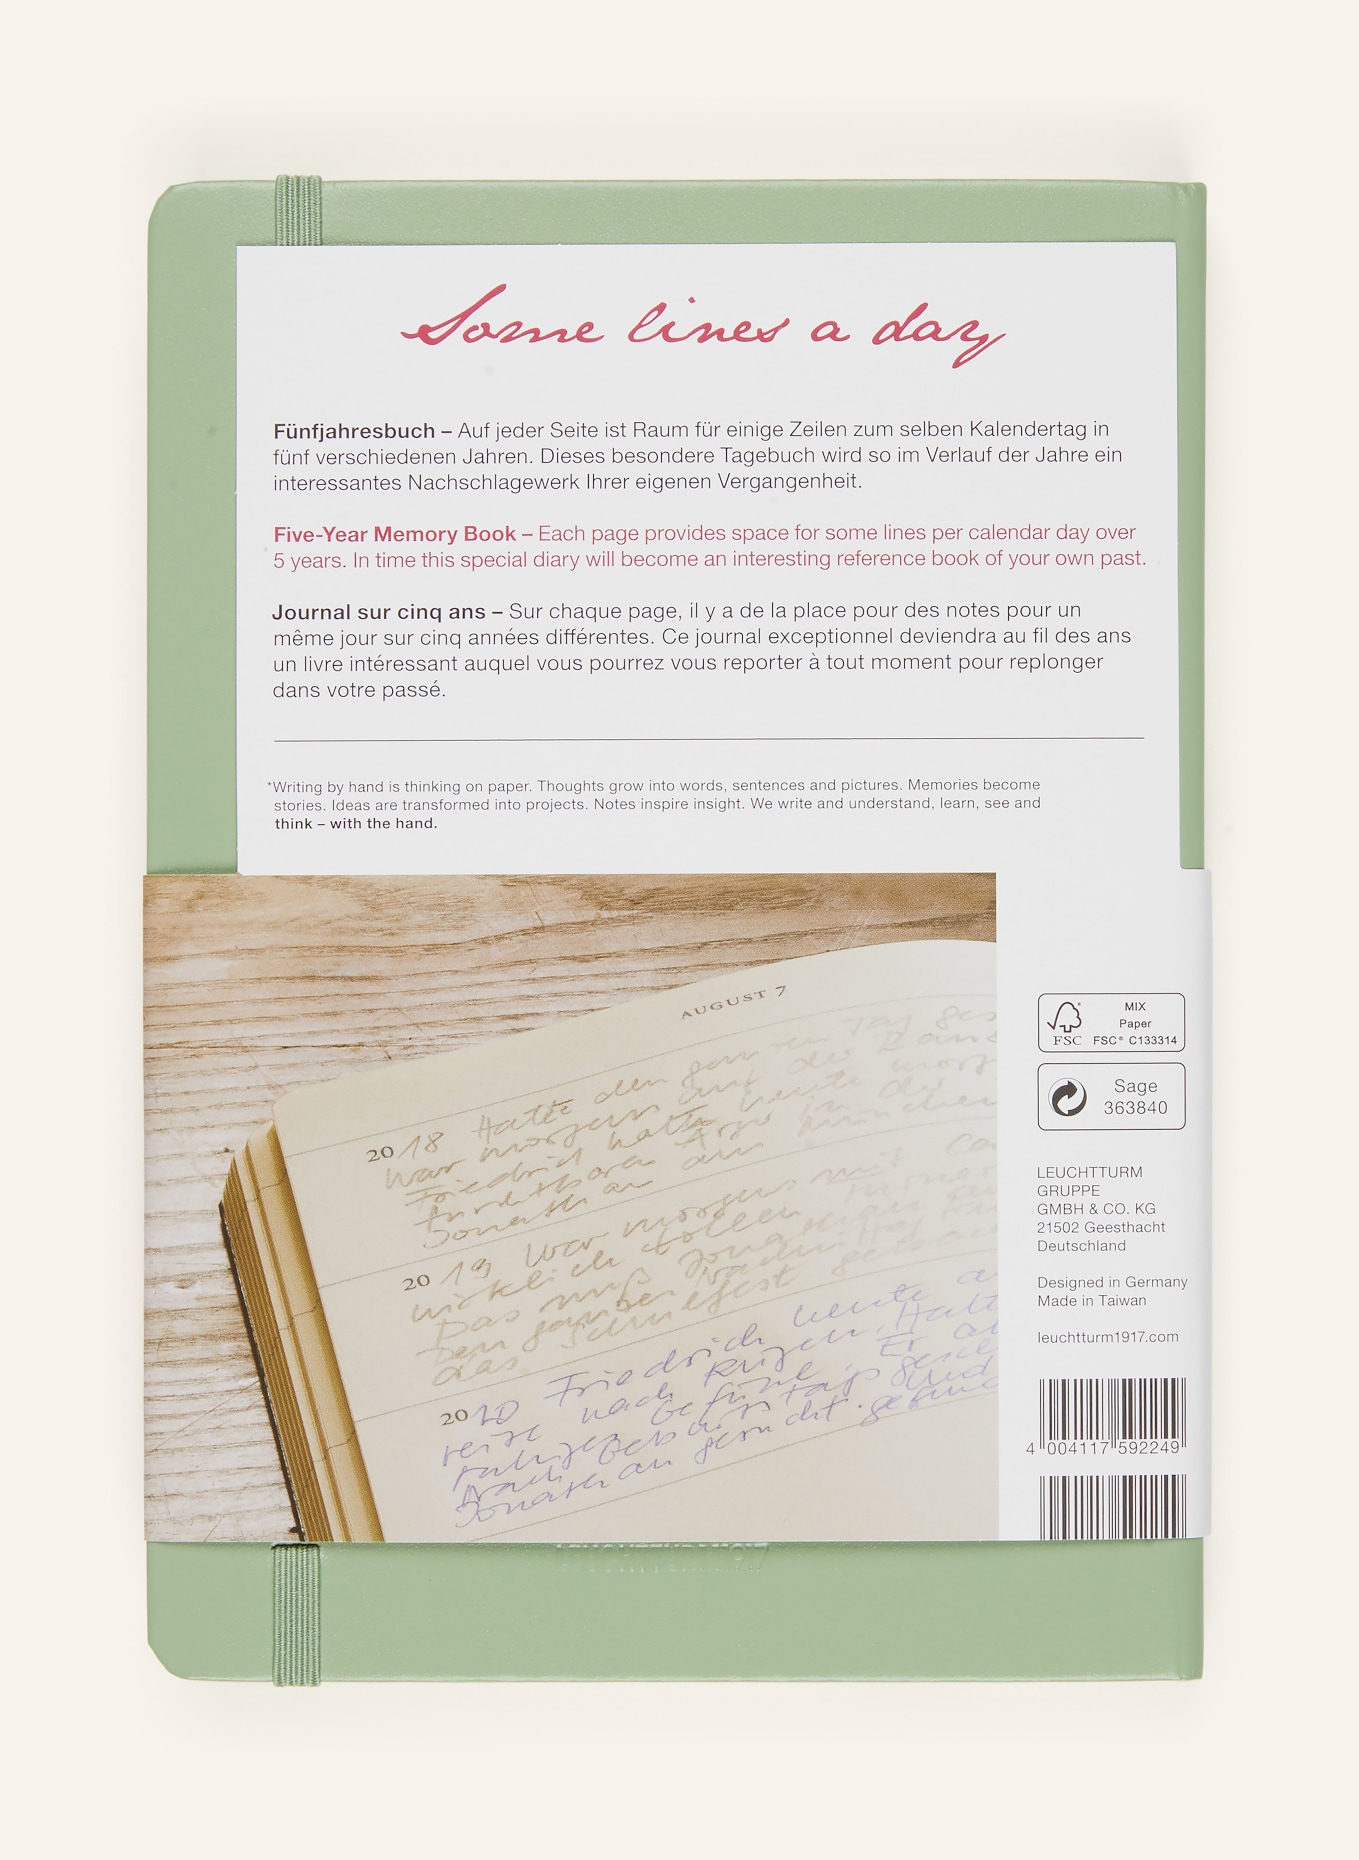 Some lines a day
Fünfjahresbuch – Auf jeder Seite ist Raum für einige Zeilen zum selben Kalendertag in
fünf verschiedenen Jahren. Dieses besondere Tagebuch wird so im Verlauf der Jahre ein
interessantes Nachschlagewerk Ihrer eigenen Vergangenheit.
Five-Year Memory Book – Each page provides space for some lines per calendar day over
5 years. In time this special diary will become an interesting reference book of your own past.
Journal sur cinq ans – Sur chaque page, il y a de la place pour des notes pour un
même jour sur cinq années différentes. Ce journal exceptionnel deviendra au fil des ans
un livre intéressant auquel vous pourrez vous reporter à tout moment pour replonger
dans votre passé.
*Writing by hand is thinking on paper. Thoughts grow into words, sentences and pictures. Memories become
stories. Ideas are transformed into projects. Notes inspire insight. We write and understand, learn, see and
think – with the hand.
AUGUST 7
2018 Hatte den
war morgens auf der
Friedrich hatte heute die
Jonathan
2019 War morgens mit
wirklich tollen
Das muß
Den ganzen
das
2020 Friedrich heute
reise nach
Jonathan
MIX
Paper
FSC FSC® C133314
Sage
363840
LEUCHTTURM
GRUPPE
GMBH & CO. KG
21502 Geesthacht
Deutschland
Designed in Germany
Made in Taiwan
leuchtturm1917.com
4 004117 592249
LEUCHTTURM1917